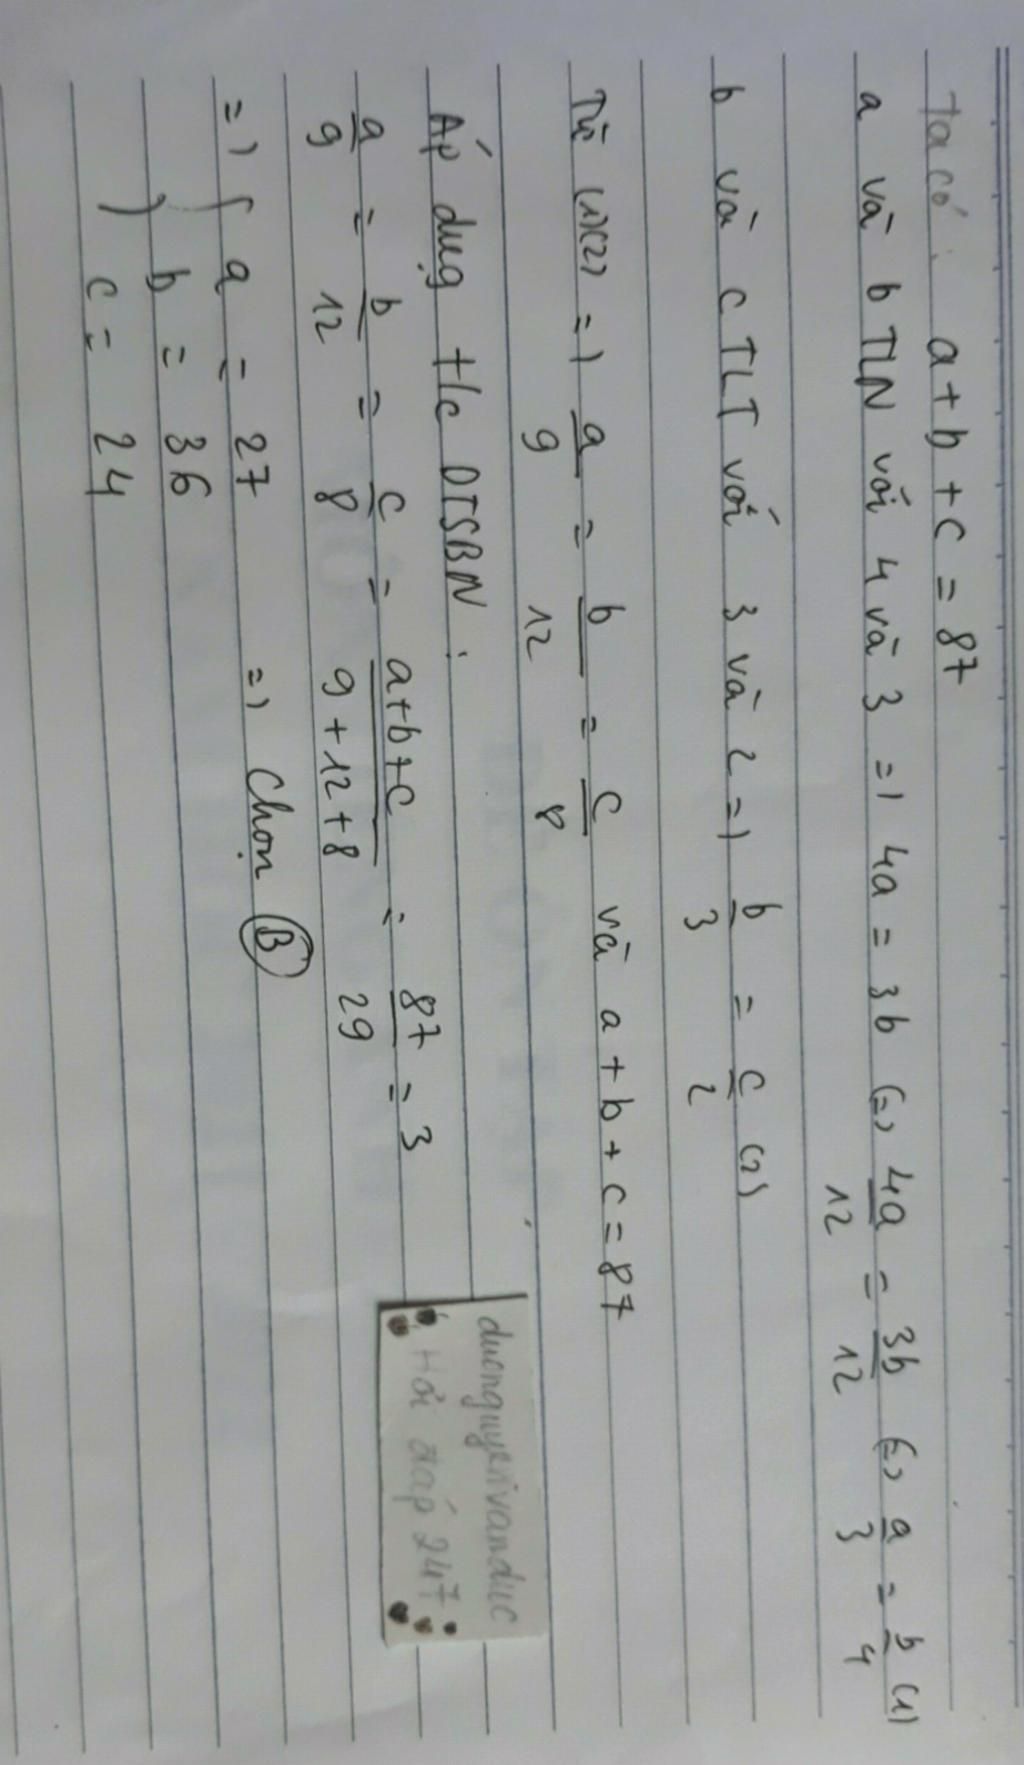 Ta có: a + b + c = 87
a và b TLN với 4 và 3 =) 4a = 3b (=) 4a/12 = 3b/12 (=) a/3 = b/4 (1)
b và c TLT với 3 và 2 =) b/3 = c/2 (2)
Từ (1)(2) =) a/9 = b/12 = c/8 và a + b + c = 87
Áp dụg t/c DTSBN:
a/9 = b/12 = c/8 = a+b+c/9+12+8 = 87/29 = 3
=) { a = 27 =) Chọn B
b = 36
c = 24
duongnguyenvanduc
Hỏi đáp 247